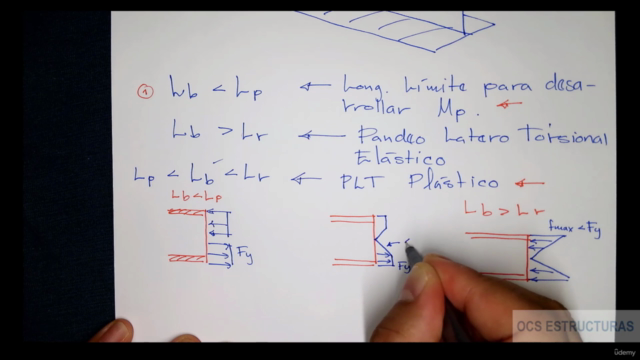 ① Lb < Lp ← Long. Límite para desa-
rrollar Mp. ←
Lb > Lr ← Pandeo Latero Torsional
Elástico
Lp < Lb < Lr ← PLT Plástico ←
Lb < Lp
Lb > Lr
fmax < Fy
Fy
Fy
OCS ESTRUCTURAS
ûdemy